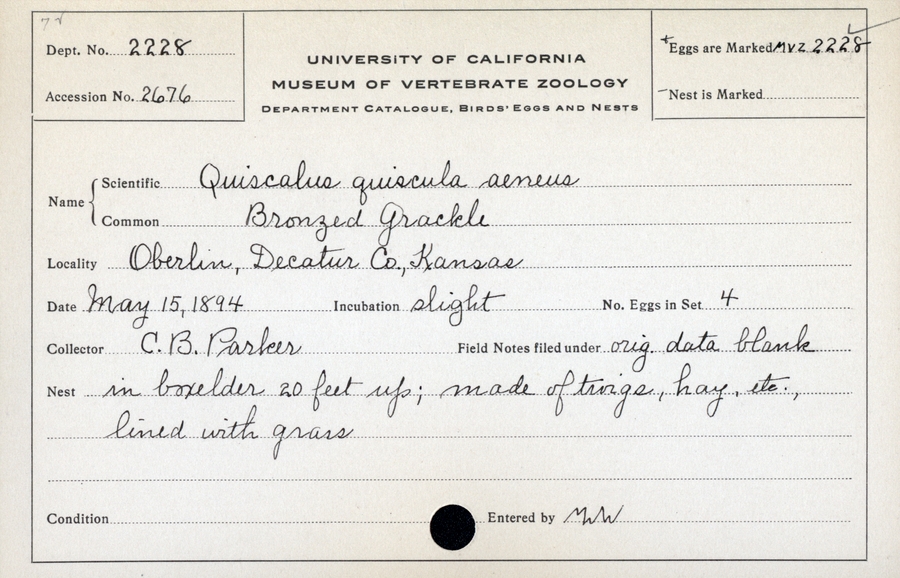 Dept. No. 2228
Accession No. 2676
UNIVERSITY OF CALIFORNIA
MUSEUM OF VERTEBRATE ZOOLOGY
DEPARTMENT CATALOGUE, BIRDS' EGGS AND NESTS
+Eggs are Marked MVZ 2228
-Nest is Marked
Name
Scientific Quiscalus quiscula aeneus
Common Bronzed Grackle
Locality Oberlin, Decatur Co., Kansas
Date May 15, 1894 Incubation slight No. Eggs in Set 4
Collector C. B. Parker Field Notes filed under orig. data blank
Nest in boxelder 20 feet up; made of twigs, hay, etc.,
lined with grass
Condition Entered by MW